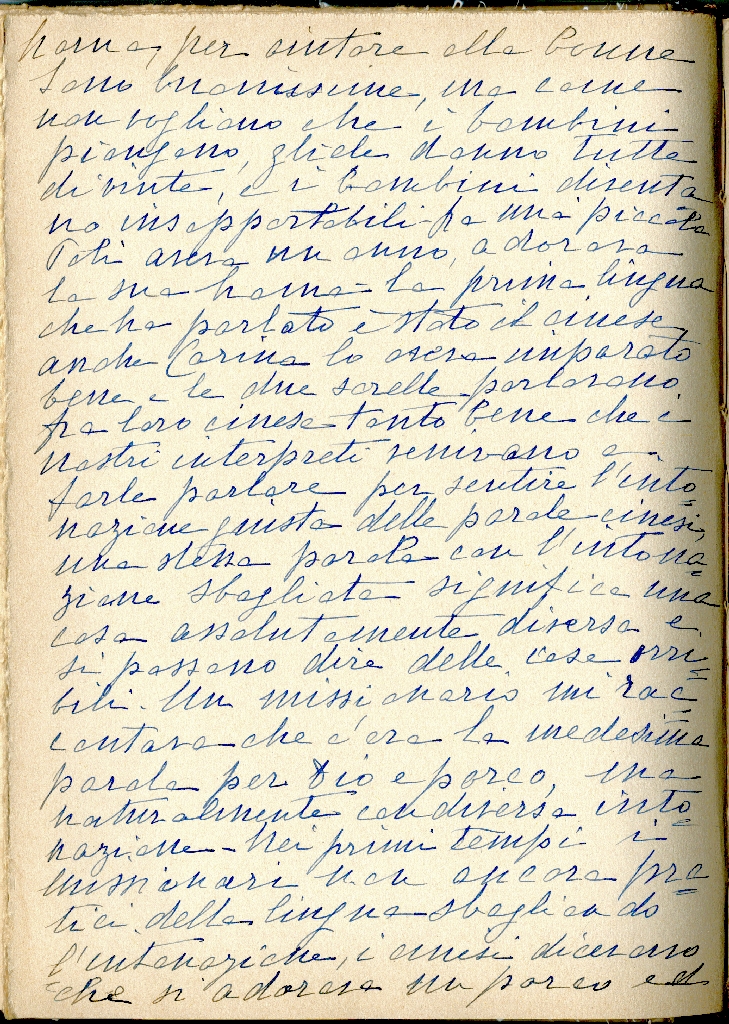 hama, per aiutare alla bonne
Sono buonissime, ma come
non vogliono che i bambini
piangano, gliele danno tutte
di vinte, e i bambini diventa
no insopportabili - fra mia piccola
Poli aveva un anno, adorava
la sua hama - la prima lingua
che ha parlato è stato il cinese,
anche Carina lo aveva imparato
bene e le due sorelle parlavano
fra loro cinese tanto bene che i
nostri interpreti venivano a
farle parlare per sentire l'into-
nazione giusta delle parole cinesi,
una stessa parola con l'intona-
zione sbagliata significa una
cosa assolutamente diversa e
si possono dire delle cose orri-
bili. Un missionario mi rac-
contava che c'era la medesima
parola per Dio e porco, ma
naturalmente con diversa into-
nazione - Nei primi tempi i
missionari non ancora pra-
tici della lingua sbagliando
l'intonazione, i cinesi dicevano
che si adorava un porco ed